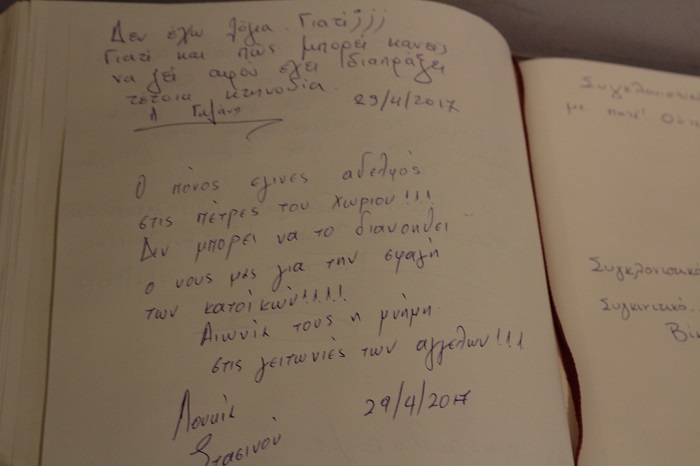 Δεν έχω λόγια. Γιατί;;;
Γιατί και πώς μπορεί κανείς
να ζεί αφου έχει διαπράξει
τέτοια κτηνωδία.
29/4/2017
Ο πόνος εγινες αδελφός
στις πέτρες του χωριου!!!
Δεν μπορει να το διανοηθει
ο νους μας για την σφαγή
των κατοίκων!!!!!
Αιωνία τους η μνήμη
στις γειτωνιές των αγγελων!!!
Λουκία 29/4/2017
Στασινού
Συγκλονιστικό
με ποτέ
Συγκλονιστικό
Συγκινιτικό..